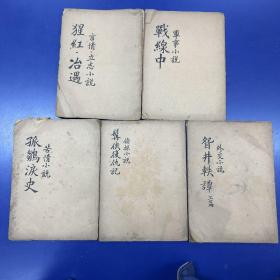 言情·立志小說
猩紅·冶遇
軍事小說
戰線中
苦情小說
孤鶵淚史
偵探小說
外交小說
智井軼譚